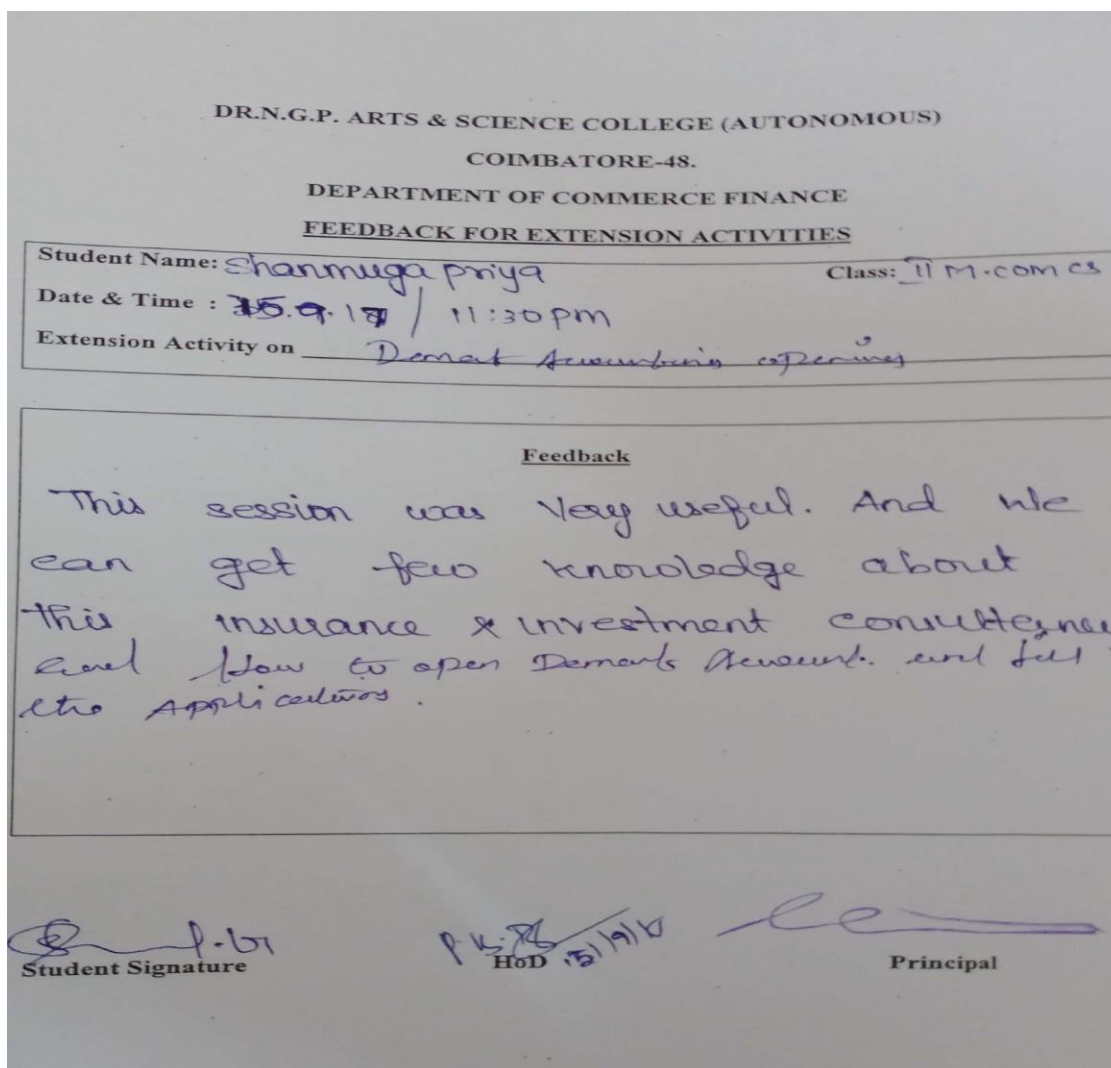 DR.N.G.P. ARTS & SCIENCE COLLEGE (AUTONOMOUS)
COIMBATORE-48.
DEPARTMENT OF COMMERCE FINANCE
FEEDBACK FOR EXTENSION ACTIVITIES
Student Name: Shanmuga priya Class: II M.com cs
Date & Time : 15.9.17 / 11:30 pm
Extension Activity on Demat opening
Feedback
This session was Very useful. And We
can get few knowledge about
this insurance & investment
and How to open Account. and fill
the Applications.
Student Signature HoD Principal